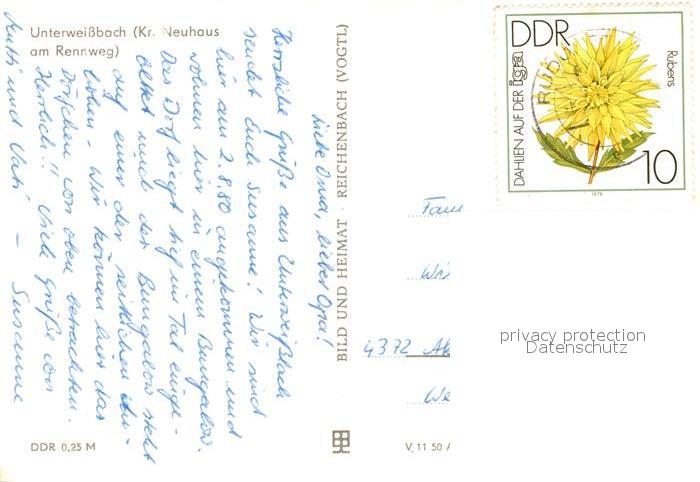 Unterweißbach (Kr. Neuhaus
am Rennweg)
Liebe Oma, lieber Opa!
Herzliche Grüße aus Unterweißbach
sendet Euch Susanne! Wir sind
hier am 2.8.80 angekommen und
wohnen hier in einem Bungalow.
Das Dorf liegt tief im Tal einge-
bettet und der Bungalow steht
auf einer der seitlichen An-
höhen - Wir können hier das
Dörfchen von oben betrachten.
Herrlich!! Viele Grüße von
Mutti und Vati - Susanne
DDR 0,25 M
BILD UND HEIMAT · REICHENBACH (VOGTL)
V 11 50
DDR
DAHLIEN AUF DER iga
Rubens
10
1979
Fam
4372
privacy protection
Datenschutz